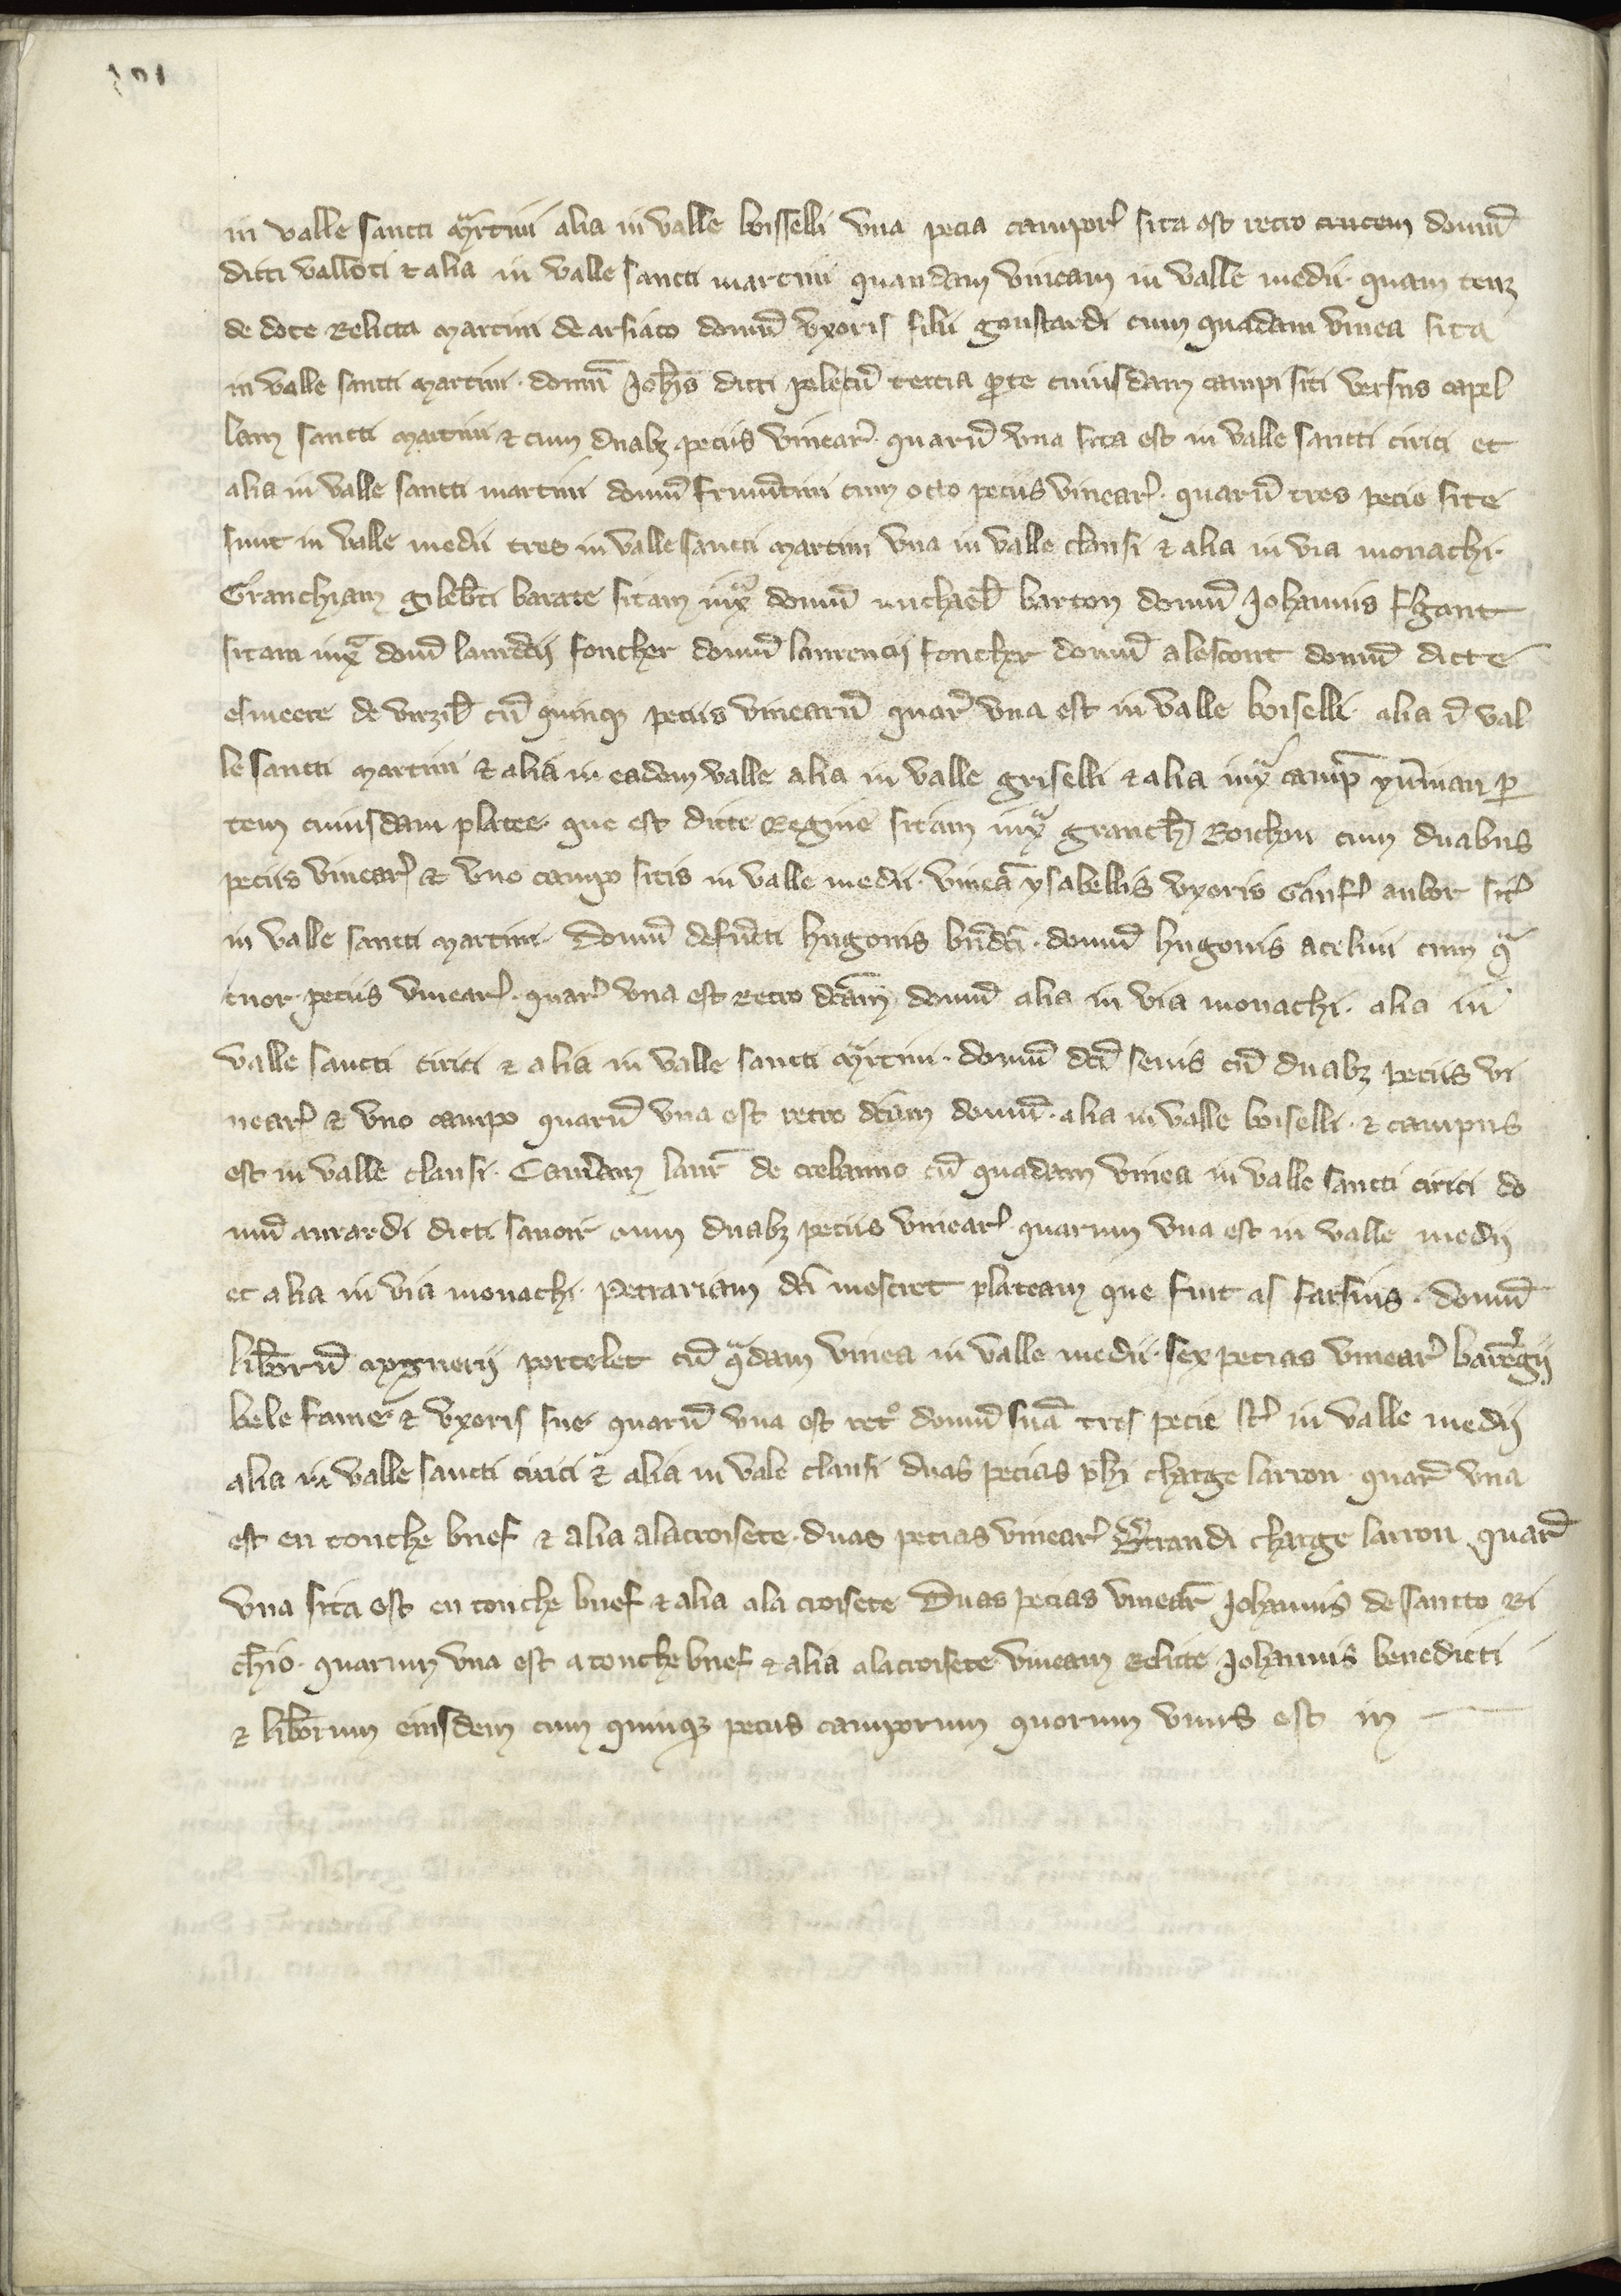 in valle sancti martini alia in valle boisselli vna pecia campor sita est retro crucem domū
dicti valloti et alia in valle sancti martini quandam vineam in valle medii quam tenz
de dote Relicta martini de arsiaco domū vxoris filii goustardi cum quadam vinea sita
in valle sancti martini domū Joħis dicti peletū tercia parte cuiusdam campi siti versus capel
lam sancti martini et cum duabz peciis vinear quarū vna sita est in valle sancti cirici et
alia in valle sancti martini domū frumētini cum octo peciis vinear quarū tres pecie site
sunt in valle medii tres in valle sancti martini vna in valle clausi et alia in via monachi
Granchiam gileb̄ti barate sitam iuxa domū michael barton domū Johannis
sitam iuxa domū foucher domū laurencij foucher domū alescout domū dicte
de cū quinqz peciis vinearū quar vna est in valle boiselli alia ī val
le sancti martini et alia in eadem valle alia in valle griselli et alia iuxa camp par
tem cuiusdam platee que est dicte Regine sitam iuxa granch Roichon cum duabus
peciis vinear et vno campo sitis in valle medii vineā ysabellis vxoris Gauf aubor sit
in valle sancti martini Domū defūcti hugonis bn̄dci domū hugonis acelini cum qa
tuor peciis vinear quar vna est retro dcām domū alia in via monachi alia in
valle sancti cirici et alia in valle sancti martini domum dci senis cū duabz peciis vi
near et vno campo quarū vna est retro dcām domū alia in valle boiselli et campus
est in valle clausi laur de crebanno cū quadam vinea in valle sancti cirici do
mū aurardi dicti sauoir cum duabz peciis vinear quarum vna est in valle medij
et alia in via monachi Petrariam dci mescret plateam que fuit as sarsins domū
lib̄orū portelet cū qadam vinea in valle medii sex pecias vinear
bele fame et vxoris sue quarū vna est reto domū suā tres pecie st in valle medij
alia in valle sancti cirici et alia in vale clausi duas pecias pħi charge larron quarū vna
est en touche buef et alia alacroisete duas pecias vinear charge larron quarū
vna sita est en touche buef et alia ala croisete Duas pecias vinear Johannis de sancto Ri
chio quarum vna est atouchebuef et alia alacroisete vineam relicte Johannis benedicti
et lib̄orum eiusdem cum quinqz peciis camporum quorum vnus est in